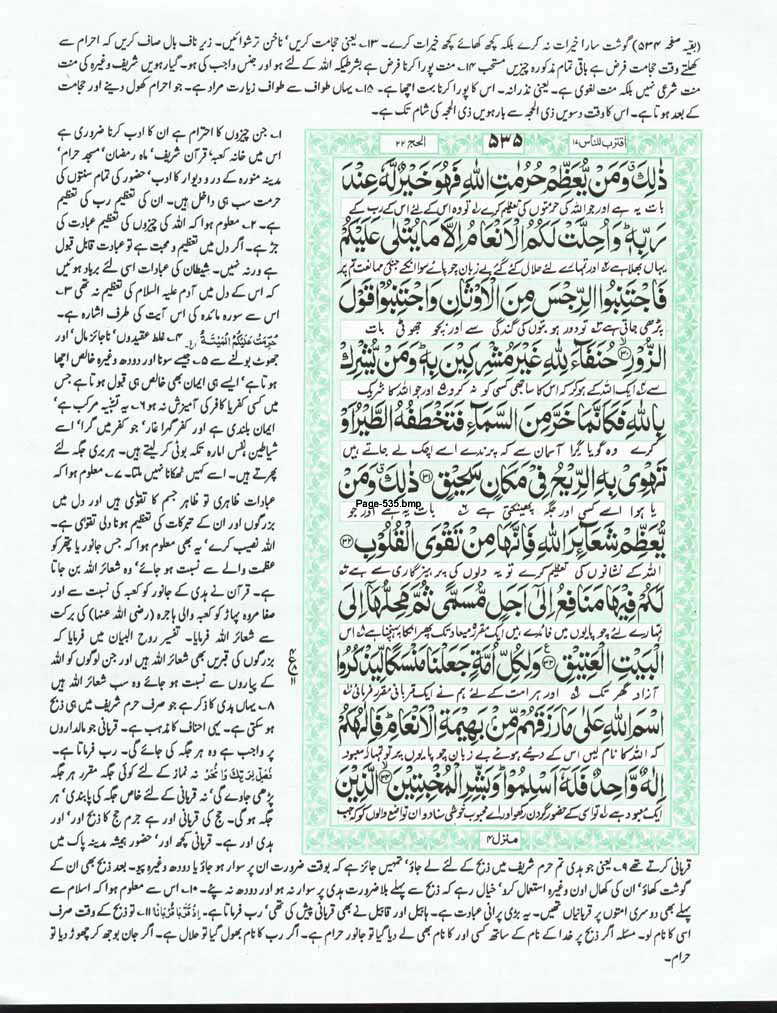 (بقیہ صفحہ ۵۳۴) گوشت سارا خیرات نہ کرے بلکہ کچھ کھائے کچھ خیرات کرے۔ ۱۳؎ یعنی حجامت کریں' ناخن ترشوائیں۔ زیر ناف بال صاف کریں کہ احرام سے
کھلتے وقت حجامت فرض ہے باقی تمام مذکورہ چیزیں مستحب ۱۴؎ منت پورا کرنا فرض ہے بشرطیکہ اللہ کے لئے ہو اور جنس واجب کی ہو۔ گیارہویں شریف وغیرہ کی منت
منت شرعی نہیں بلکہ منت لغوی ہے۔ یعنی نذرانہ۔ اس کا پورا کرنا بہت اچھا ہے۔ ۱۵؎ یہاں طواف سے طواف زیارت مراد ہے۔ جو احرام کھول دینے اور حجامت
کے بعد ہوتا ہے۔ اس کا وقت دسویں ذی الحجہ سے بارہویں ذی الحجہ کی شام تک ہے۔
اقترب للناس ۱۷
۵۳۵
الحج ۲۲
ذٰلِكَ وَمَنْ يُّعَظِّمْ حُرُمٰتِ اللّٰهِ فَهُوَ خَيْرٌ لَّهٗ عِنْدَ
بات یہ ہے اور جو اللہ کی حرمتوں کی تعظیم کرے لہ تو وہ اس کے لئے اس کے رب کے
رَبِّهٖ وَاُحِلَّتْ لَكُمُ الْاَنْعَامُ اِلَّا مَا يُتْلٰى عَلَيْكُمْ
یہاں بھلا ہے اور تمہارے لئے حلال کئے گئے بے زبان چوپائے سوا انکے جنکی ممانعت تم پر
فَاجْتَنِبُوا الرِّجْسَ مِنَ الْاَوْثَانِ وَاجْتَنِبُوْا قَوْلَ
پڑھی جاتی ہے تو دور ہو بتوں کی گندگی سے اور بچو جھوٹی بات
الزُّوْرِ حُنَفَآءَ لِلّٰهِ غَيْرَ مُشْرِكِيْنَ بِهٖ وَمَنْ يُّشْرِكْ
سے ایک اللہ کے ہو کر کہ اس کا ساجھی کسی کو نہ کرو اور جو اللہ کا شریک
بِاللّٰهِ فَكَاَنَّمَا خَرَّ مِنَ السَّمَآءِ فَتَخْطَفُهُ الطَّيْرُ اَوْ
کرے وہ گویا گرا آسمان سے کہ پرندے اسے اچک لے جاتے ہیں
تَهْوِيْ بِهِ الرِّيْحُ فِيْ مَكَانٍ سَحِيْقٍ ۳۱ ذٰلِكَ وَمَنْ
Page-535.bmp
یا ہوا اسے کسی اور جگہ پھینکتی ہے بات یہ ہے اور جو
يُّعَظِّمْ شَعَآئِرَ اللّٰهِ فَاِنَّهَا مِنْ تَقْوَى الْقُلُوْبِ ۳۲
اللہ کے نشانوں کی تعظیم کرے تو یہ دلوں کی پرہیزگاری سے ہے
لَكُمْ فِيْهَا مَنَافِعُ اِلٰٓى اَجَلٍ مُّسَمًّى ثُمَّ مَحِلُّهَآ اِلَى
تمہارے لئے چوپایوں میں فائدے ہیں ایک مقررہ میعاد تک پھر انکا پہنچنا ہے اس
الْبَيْتِ الْعَتِيْقِ ۳۳ وَلِكُلِّ اُمَّةٍ جَعَلْنَا مَنْسَكًا لِّيَذْكُرُوا
آزاد گھر تک اور ہر امت کے لئے ہم نے ایک قربانی مقرر فرمائی
اسْمَ اللّٰهِ عَلٰى مَا رَزَقَهُمْ مِّنْۢ بَهِيْمَةِ الْاَنْعَامِ فَاِلٰهُكُمْ
کہ اللہ کا نام لیں اس کے دیئے ہوئے بے زبان چوپایوں پر تو تمہارا معبود
اِلٰهٌ وَّاحِدٌ فَلَهٗٓ اَسْلِمُوْا وَبَشِّرِ الْمُخْبِتِيْنَ ۳۴ الَّذِيْنَ
ایک معبود ہے تو اسی کے حضور گردن رکھو اور اے محبوب خوشی سنا دو ان تواضع والوں کو کہ جب
منزل ۴
۱؎ جن چیزوں کا احترام ہے ان کا ادب کرنا ضروری ہے
اس میں خانہ کعبہ' قرآن شریف' ماہ رمضان' مسجد حرام'
مدینہ منورہ کے در و دیوار کا ادب' حضور کی تمام سنتوں کی
حرمت سب ہی داخل ہیں۔ ان کی تعظیم رب کی تعظیم
ہے۔ ۲؎ معلوم ہوا کہ اللہ کی چیزوں کی تعظیم عبادت کی
جڑ ہے۔ اگر دل میں تعظیم و محبت ہے تو عبادت قابل قبول
ہے ورنہ نہیں۔ شیطان کی عبادات اسی لئے برباد ہوئیں
کہ اس کے دل میں آدم علیہ السلام کی تعظیم نہ تھی ۳؎
اس سے سورہ مائدہ کی اس آیت کی طرف اشارہ ہے۔
حُرِّمَتْ عَلَيْكُمُ الْمَيْتَةُ ۴؎ غلط عقیدوں' ناجائز مال' اور
جھوٹ بولنے سے ۵؎ جیسے سونا اور دودھ وغیرہ خالص اچھا
ہوتا ہے' ایسے ہی ایمان بھی خالص ہی قبول ہوتا ہے جس
میں کسی کفر یا کافر کی آمیزش نہ ہو ۶؎ یہ تشبیہ مرکب ہے'
ایمان بلندی ہے اور کفر گہرا غار' جو کفر میں گرا' اسے
شیاطین نفس امارہ تکہ بوٹی کر لیتے ہیں۔ ہر بری جگہ لئے
پھرتے ہیں۔ اسے کہیں ٹھکانا نہیں ملتا۔ ۷؎ معلوم ہوا کہ
عبادات ظاہری تو ظاہر جسم کا تقویٰ ہیں اور دل میں
بزرگوں اور ان کے تبرکات کی تعظیم ہونا دلی تقویٰ ہے۔
اللہ نصیب کرے' یہ بھی معلوم ہوا کہ جس جانور یا پتھر کو
عظمت والے سے نسبت ہو جائے' وہ شعائر اللہ بن جاتا
ہے۔ قرآن نے ہدی کے جانور کو کعبہ کی نسبت سے اور
صفا مروہ پہاڑ کو کعبہ والی ہاجرہ (رضی اللہ عنہا) کی برکت
سے شعائر اللہ فرمایا۔ تفسیر روح البیان میں فرمایا کہ
بزرگوں کی قبریں بھی شعائر اللہ ہیں اور جن لوگوں کو اللہ
کے پیاروں سے نسبت ہو جائے وہ سب شعائر اللہ ہیں
۸؎ یہاں ہدی کا ذکر ہے جو صرف حرم شریف میں ہی ذبح
ہو سکتی ہے۔ یہی احناف کا مذہب ہے۔ قربانی جو مالداروں
پر واجب ہے وہ ہر جگہ کی جائے گی۔ رب فرماتا ہے۔
فَصَلِّ لِرَبِّكَ وَانْحَرْ نہ نماز کے لئے کوئی جگہ مقرر ہر جگہ
پڑھی جاوے گی' نہ قربانی کے لئے خاص جگہ کی پابندی' ہر
جگہ ہو گی۔ حج کی قربانی اور ہے جرم حج کا ذبح اور' اور
ہدی اور ہے۔ قربانی کچھ اور' حضور ہمیشہ مدینہ پاک میں
قربانی کرتے تھے ۹؎ یعنی جو ہدی تم حرم شریف میں ذبح کے لئے لے جاؤ' تمہیں جائز ہے کہ بوقت ضرورت ان پر سوار ہو جاؤ یا دودھ وغیرہ پیو۔ بعد ذبح بھی ان کے
گوشت کھاؤ' ان کی کھال اون وغیرہ استعمال کرو' خیال رہے کہ ذبح سے پہلے بلا ضرورت ہدی پر سوار نہ ہو اور دودھ نہ پئے۔ ۱۰؎ اس سے معلوم ہوا کہ اسلام سے
پہلے بھی دوسری امتوں پر قربانیاں تھیں۔ یہ بڑی پرانی عبادت ہے۔ ہابیل اور قابیل نے بھی قربانی پیش کی تھی' رب فرماتا ہے۔ اِذْ قَرَّبَا قُرْبَانًا ۱۱؎ تو ذبح کے وقت صرف
اسی کا نام لو۔ مسئلہ اگر ذبح پر خدا کے نام کے ساتھ کسی اور کا نام بھی لے دیا گیا تو جانور حرام ہے۔ اگر رب کا نام بھول گیا تو حلال ہے۔ اگر جان بوجھ کر چھوڑ دیا تو
حرام۔